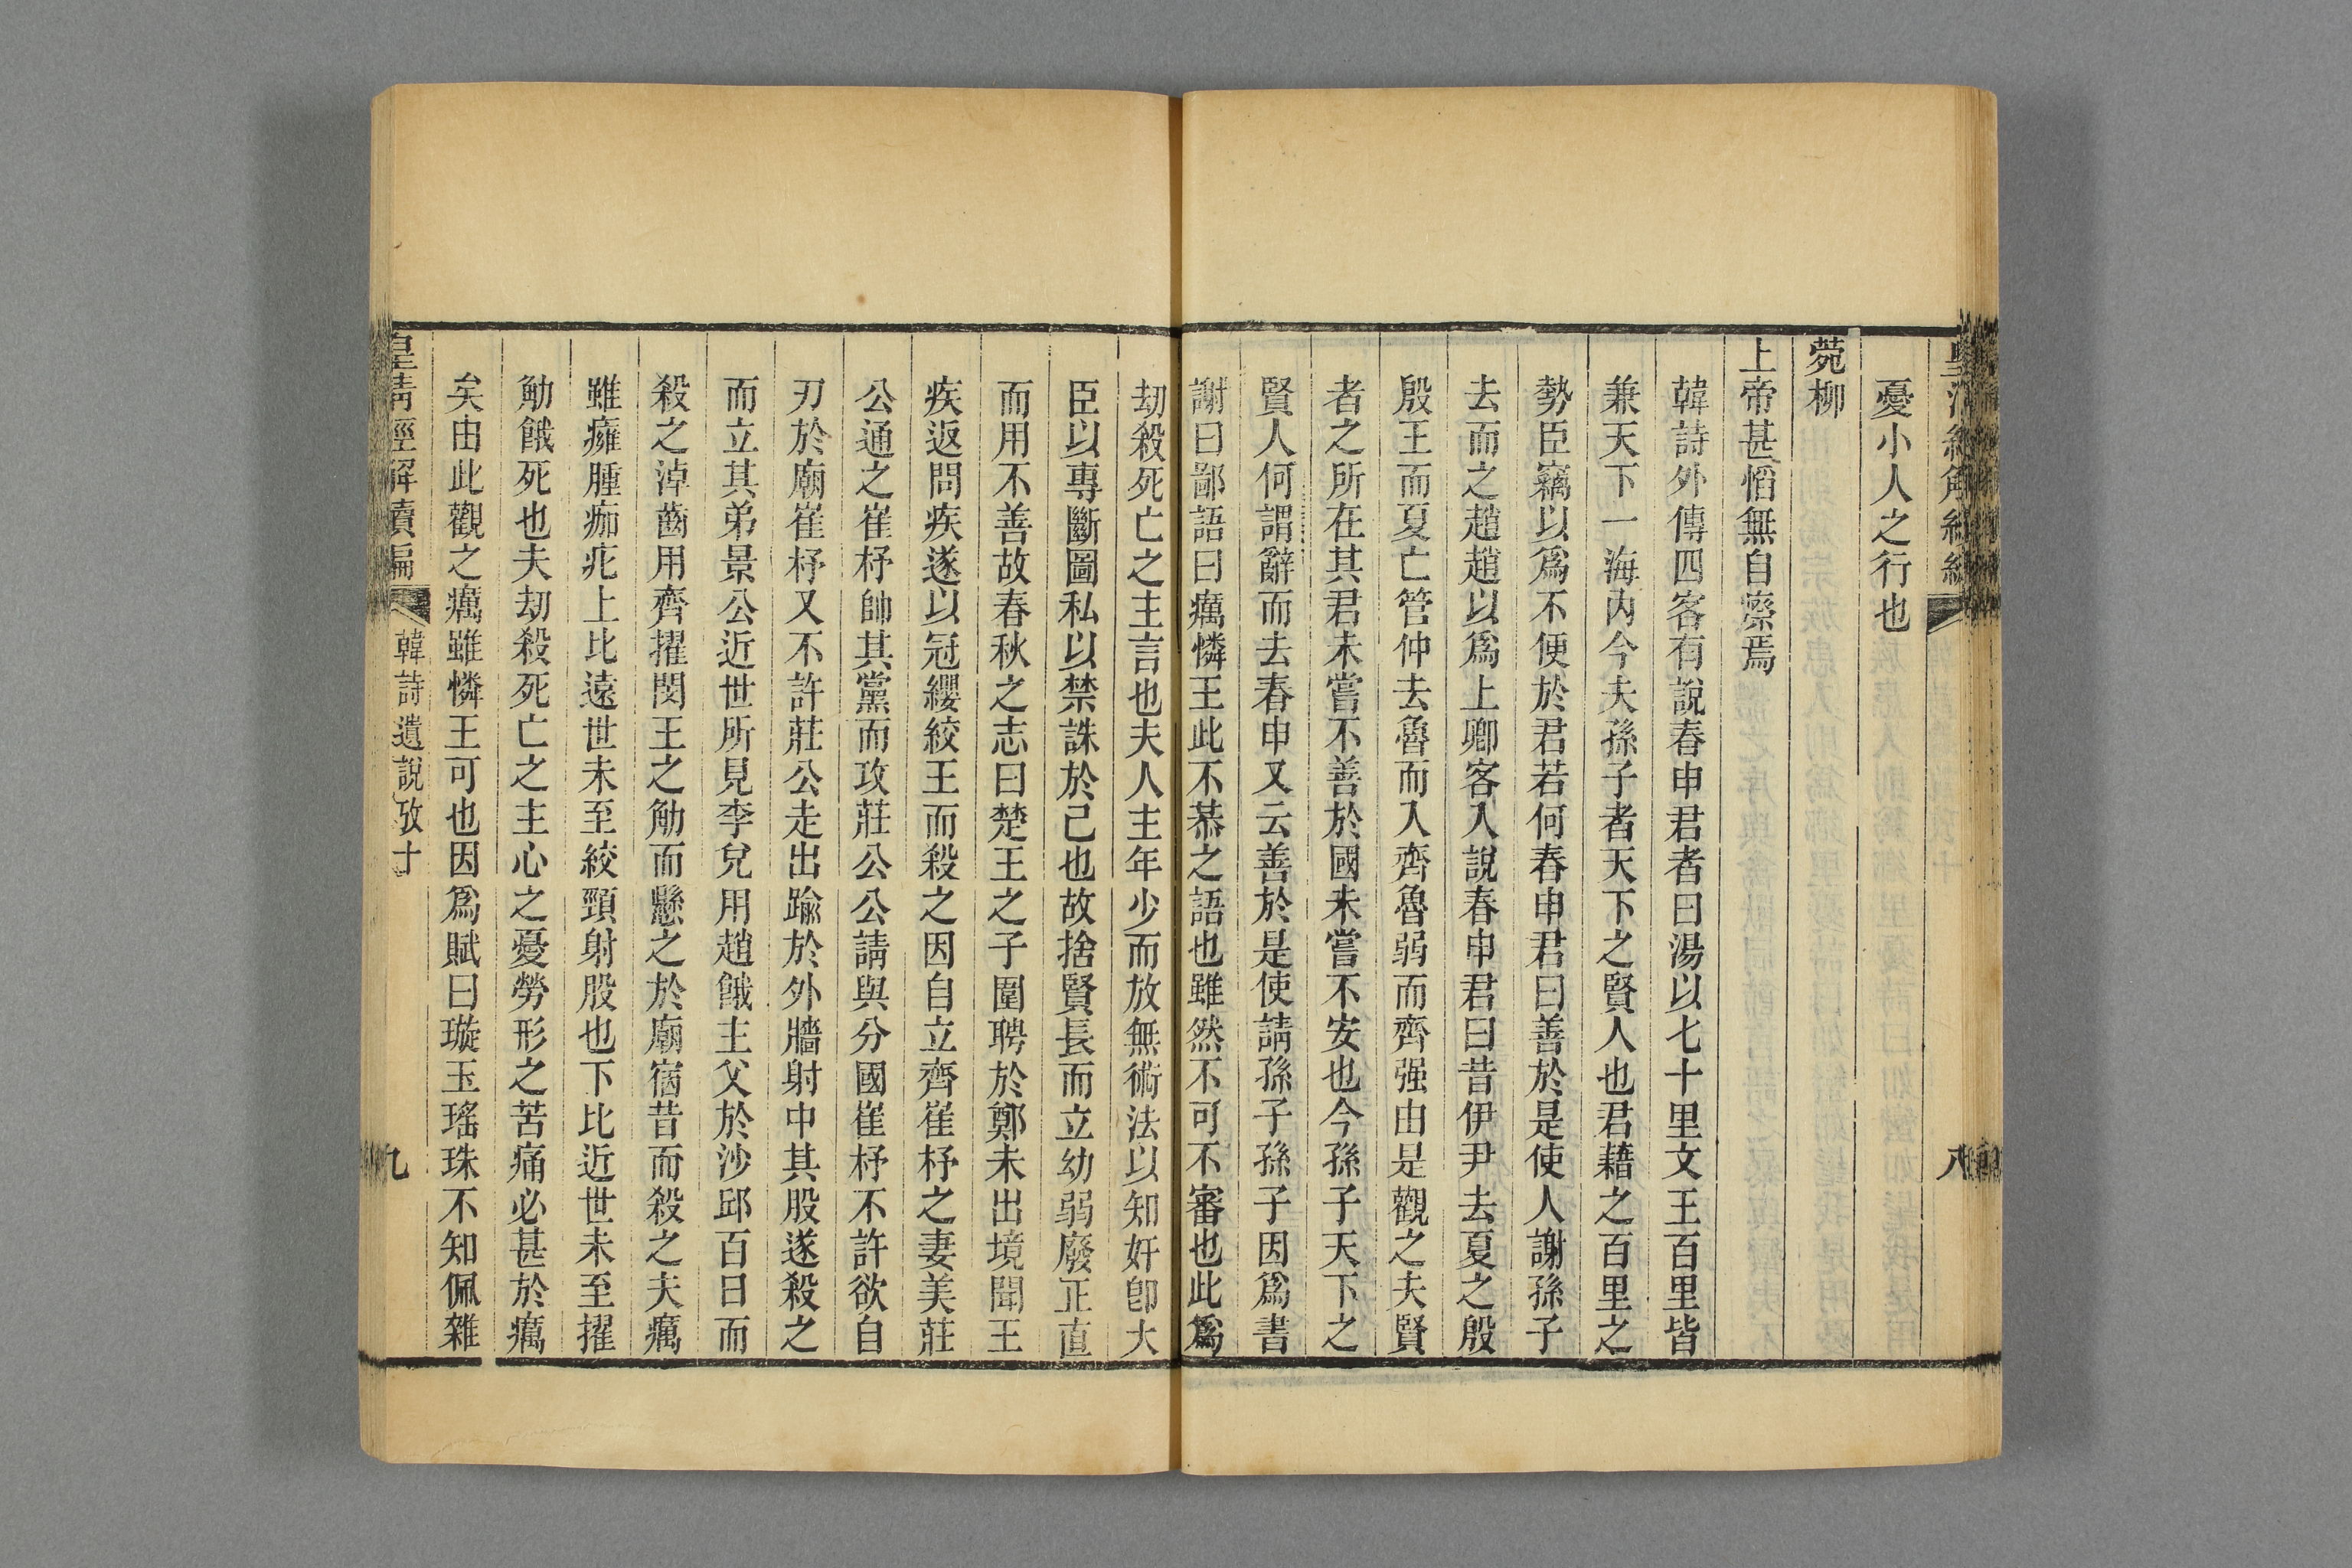 憂小人之行也
菀柳
上帝甚慆無自瘵焉
韓詩外傳四客有說春申君者曰湯以七十里文王百里皆
兼天下一海內今夫孫子者天下之賢人也君藉之百里之
勢臣竊以爲不便於君若何春申君曰善於是使人謝孫子
去而之趙趙以爲上卿客又說春申君曰昔伊尹去夏之殷
殷王而夏亡管仲去魯而入齊魯弱而齊强由是觀之夫賢
者之所在其君未嘗不善於國未嘗不安也今孫子天下之
賢人何謂辭而去春申又云善於是使請孫子孫子因爲書
謝曰鄙語曰癘憐王此不恭之語也雖然不可不審也此爲
劫殺死亡之主言也夫人主年少而放無術法以知奸卽大
臣以專斷圖私以禁誅於己也故捨賢長而立幼弱廢正直
而用不善故春秋之志曰楚王之子圍聘於鄭未出境聞王
疾返問疾遂以冠纓絞王而殺之因自立齊崔杼之妻美莊
公通之崔杼帥其黨而攻莊公公請與分國崔杼不許欲自
刃於廟崔杼又不許莊公走出踰於外牆射中其股遂殺之
而立其弟景公近世所見李兌用趙餓主父於沙邱百日而
殺之淖齒用齊擢閔王之觔而懸之於廟宿昔而殺之夫癘
雖癰腫痂疕上比遠世未至絞頸射股也下比近世未至擢
觔餓死也夫劫殺死亡之主心之憂勞形之苦痛必甚於癘
矣由此觀之癘雖憐王可也因爲賦曰璇玉瑤珠不知佩雜
皇淸經解續編 韓詩遺說攷十 九